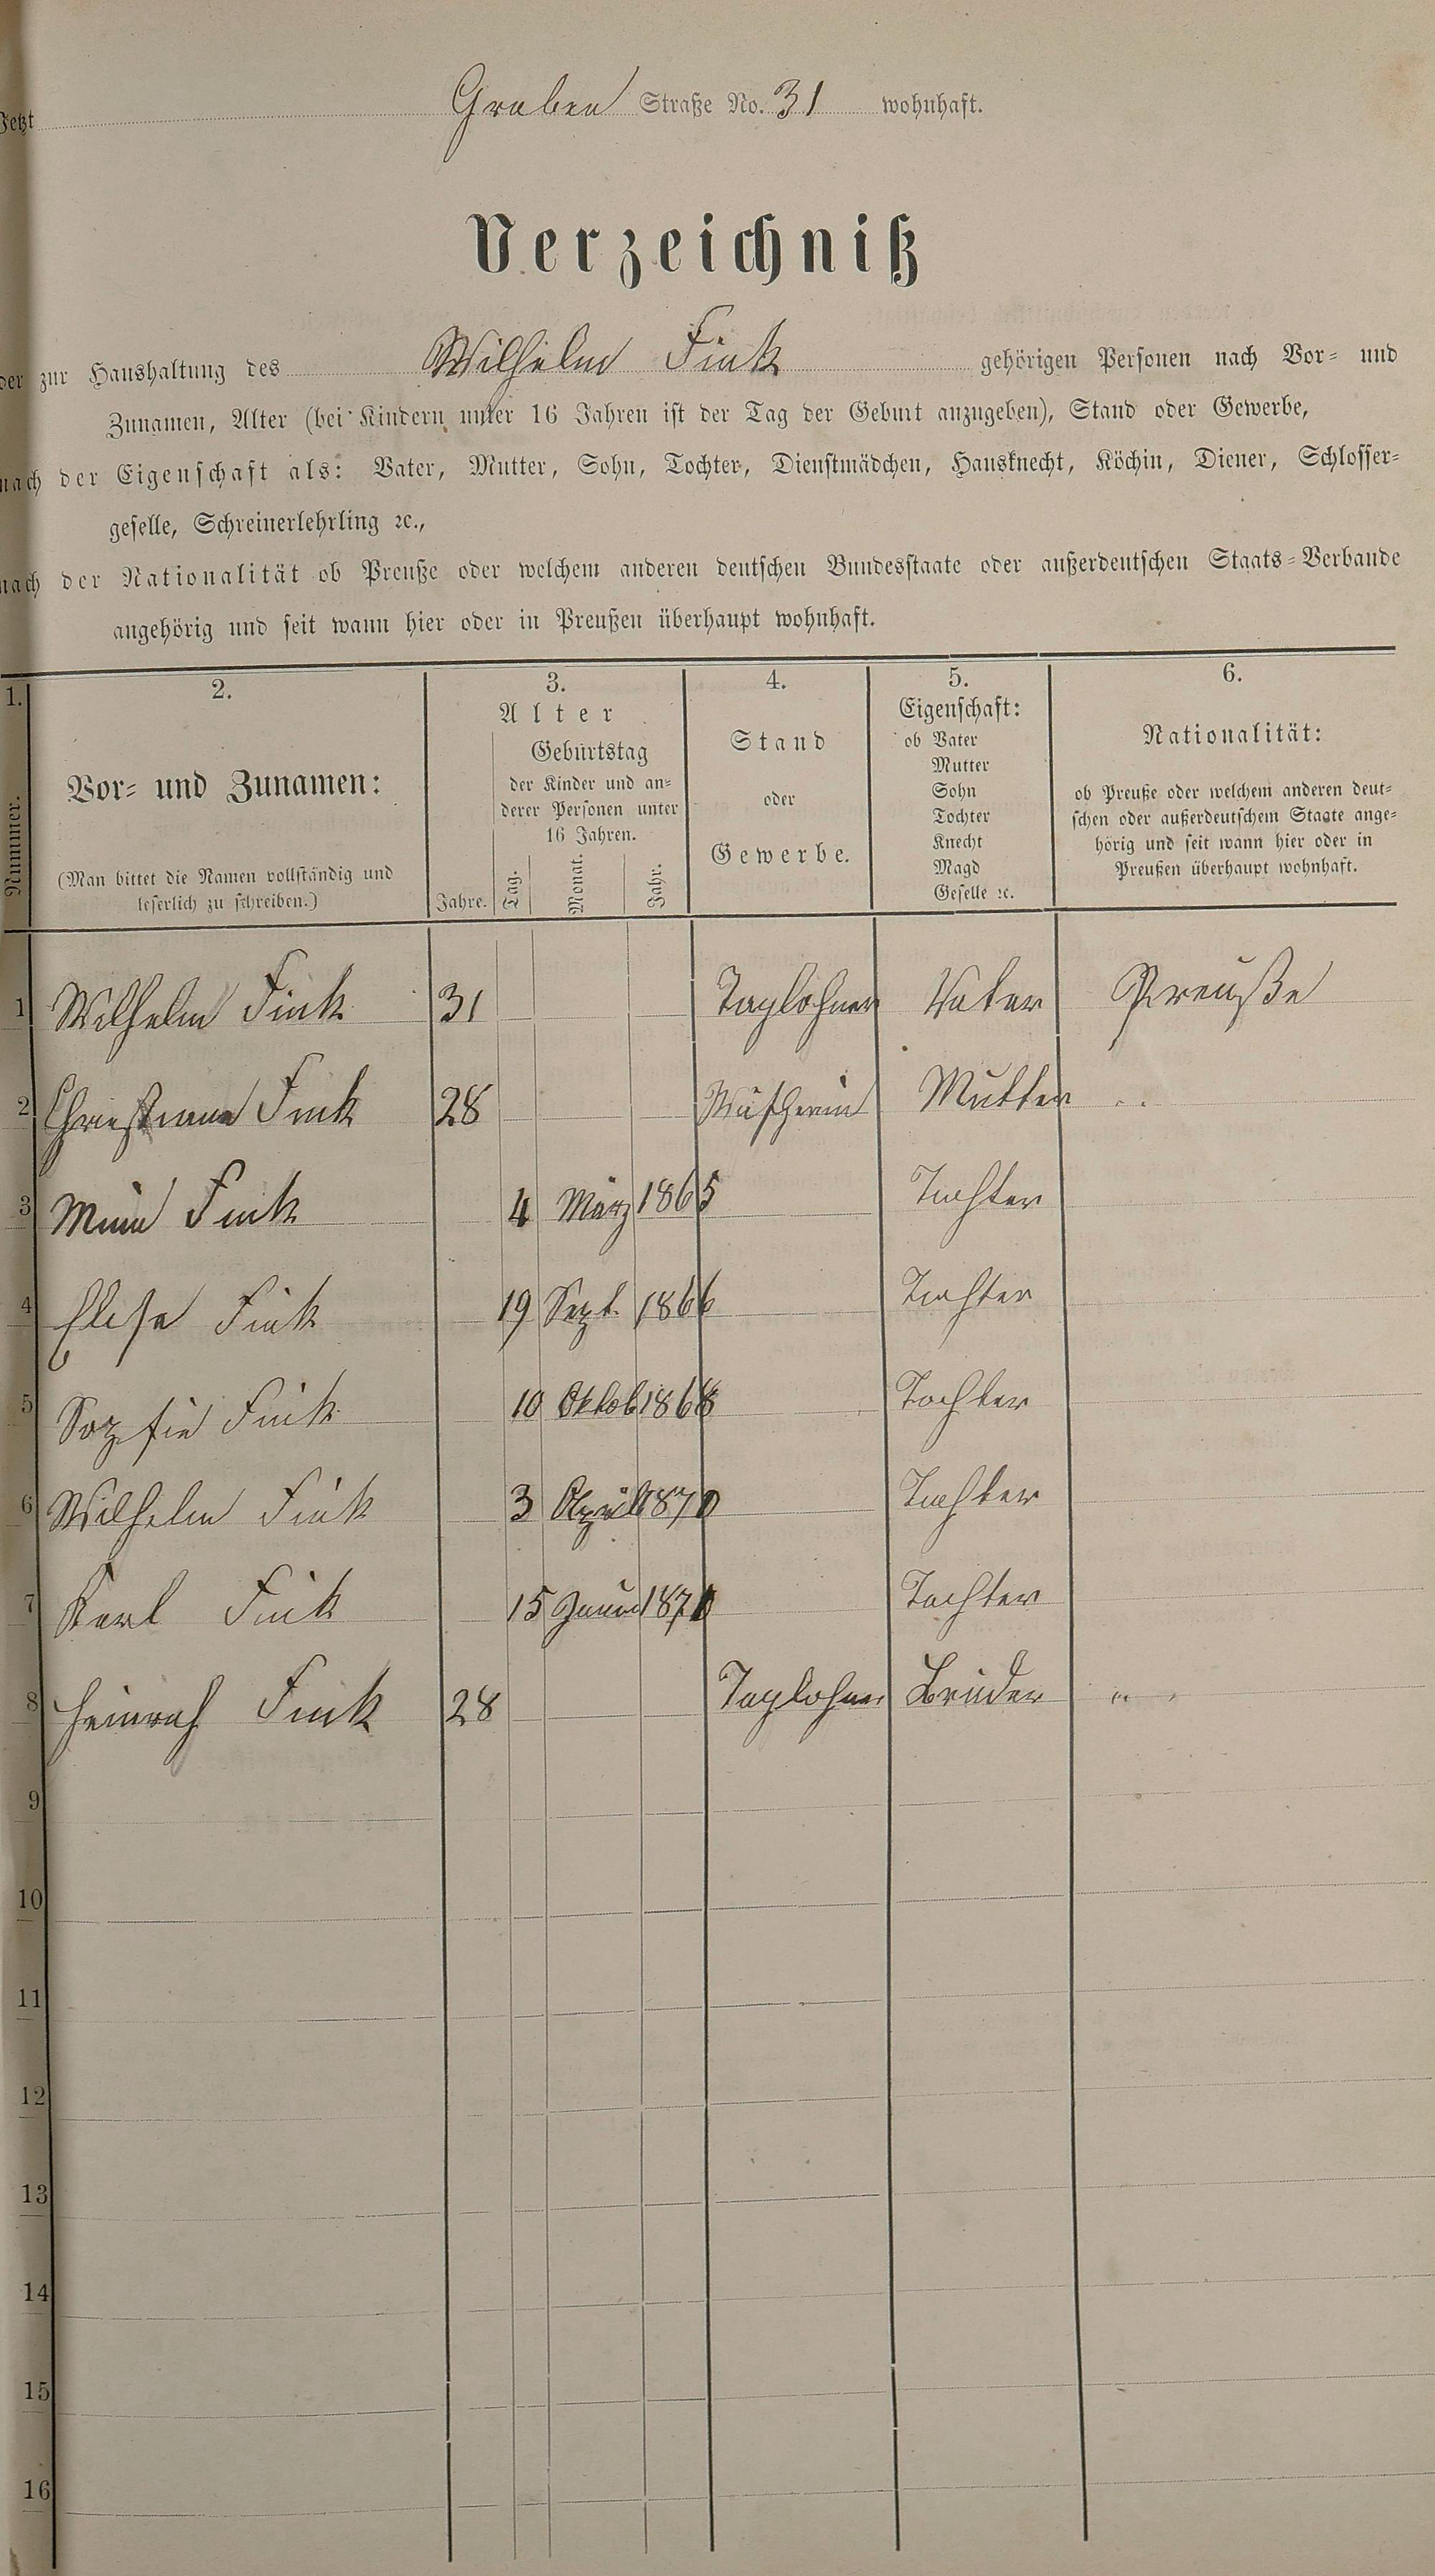 Jetzt Graben Straße No. 31 wohnhaft.
Verzeichniß
der zur Haushaltung des Wilhelm Fink gehörigen Personen nach Vor- und
Zunamen, Alter (bei Kindern unter 16 Jahren ist der Tag der Geburt anzugeben), Stand oder Gewerbe,
nach der Eigenschaft als: Vater, Mutter, Sohn, Tochter, Dienstmädchen, Hausknecht, Köchin, Diener, Schlosser-
geselle, Schreinerlehrling ꝛc.,
nach der Nationalität ob Preuße oder welchem anderen deutschen Bundesstaate oder außerdeutschen Staats-Verbande
angehörig und seit wann hier oder in Preußen überhaupt wohnhaft.
1.
Nummer.
2.
Vor- und Zunamen:
(Man bittet die Namen vollständig und
leserlich zu schreiben.)
3.
Alter
Geburtstag
der Kinder und an-
derer Personen unter
16 Jahren.
Jahre. Tag. Monat. Jahr.
4.
Stand
oder
Gewerbe.
5.
Eigenschaft:
ob Vater
Mutter
Sohn
Tochter
Knecht
Magd
Geselle ꝛc.
6.
Nationalität:
ob Preuße oder welchem anderen deut-
schen oder außerdeutschem Staate ange-
hörig und seit wann hier oder in
Preußen überhaupt wohnhaft.
1 Wilhelm Fink 31 Taglohner Vater Preuße
2 Christiane Fink 28 Wäscherin Mutter "
3 Fink 4 März 1865 Tochter
4 Elise Fink 19 Sept. 1866 Tochter
5 Sopfie Fink 10 Oktob 1868 Tochter
6 Wilhelm Fink 3 April 1870 Tochter
7 Karl Fink 15 Tochter
8 Heinrich Fink 28 Taglohner Bruder "
9
10
11
12
13
14
15
16